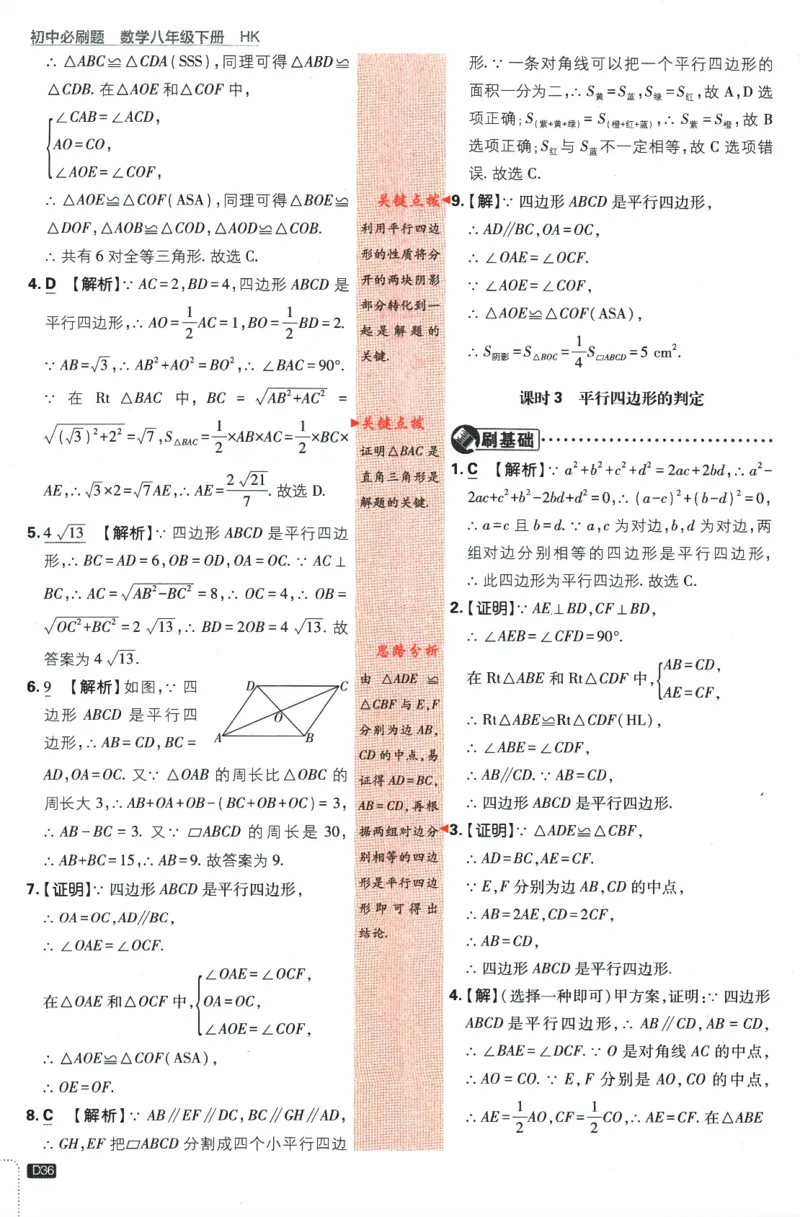 初中必刷题 数学八年级下册 HK
∴ △ABC≌△CDA(SSS),同理可得△ABD≌
△CDB. 在△AOE 和△COF 中,
∠CAB=∠ACD,
AO=CO,
∠AOE=∠COF,
∴ △AOE≌△COF(ASA),同理可得△BOE≌
△DOF,△AOB≌△COD,△AOD≌△COB.
∴ 共有 6 对全等三角形. 故选 C.
4. D 【解析】∵ AC=2,BD=4,四边形 ABCD 是
平行四边形,∴ AO=1/2AC=1,BO=1/2BD=2.
∵ AB=√3,∴ AB²+AO²=BO²,∴ ∠BAC=90°.
∵ 在 Rt △BAC 中, BC = √(AB²+AC²) =
√((√3)²+2²)=√7,S△BAC=1/2×AB×AC=1/2×BC×
AE,∴ √3×2=√7AE,∴ AE=2√21/7. 故选 D.
5. 4√13 【解析】∵ 四边形 ABCD 是平行四边
形,∴ BC=AD=6,OB=OD,OA=OC. ∵ AC⊥
BC,∴ AC=√(AB²-BC²)=8,∴ OC=4,∴ OB=
√(OC²+BC²)=2√13,∴ BD=2OB=4√13. 故
答案为 4√13.
6. 9 【解析】如图,∵ 四
边形 ABCD 是平行四
边形,∴ AB=CD,BC=
D C
O
A B
AD,OA=OC. 又∵ △OAB 的周长比△OBC 的
周长大 3,∴ AB+OA+OB-(BC+OB+OC)=3,
∴ AB-BC=3. 又∵ ▱ABCD 的周长是 30,
∴ AB+BC=15,∴ AB=9. 故答案为 9.
7.【证明】∵ 四边形 ABCD 是平行四边形,
∴ OA=OC,AD∥BC,
∴ ∠OAE=∠OCF.
在△OAE 和△OCF 中,
∠OAE=∠OCF,
OA=OC,
∠AOE=∠COF,
∴ △AOE≌△COF(ASA),
∴ OE=OF.
8. C 【解析】∵ AB∥EF∥DC,BC∥GH∥AD,
∴ GH,EF 把▱ABCD 分割成四个小平行四边
D36
关键点拨
利用平行四边
形的性质将分
开的两块阴影
部分转化到一
起是解题的
关键.
关键点拨
证明△BAC 是
直角三角形是
解题的关键.
思路分析
由 △ADE ≌
△CBF 与 E,F
分别为边 AB,
CD 的中点,易
证得 AD=BC,
AB=CD,再根
据两组对边分
别相等的四边
形是平行四边
形即可得出
结论.
形. ∵ 一条对角线可以把一个平行四边形的
面积一分为二,∴ S黄=S蓝,S绿=S红,故 A,D 选
项正确;S(紫+黄+绿)=S(橙+红+蓝),∴ S紫=S橙,故 B
选项正确;S红与 S蓝不一定相等,故 C 选项错
误. 故选 C.
9.【解】∵ 四边形 ABCD 是平行四边形,
∴ AD∥BC,OA=OC,
∴ ∠OAE=∠OCF.
∵ ∠AOE=∠COF,
∴ △AOE≌△COF(ASA),
∴ S阴影=S△BOC=1/4S▱ABCD=5 cm².
课时 3 平行四边形的判定
刷基础
1. C 【解析】∵ a²+b²+c²+d²=2ac+2bd,∴ a²-
2ac+c²+b²-2bd+d²=0,∴ (a-c)²+(b-d)²=0,
∴ a=c 且 b=d. ∵ a,c 为对边,b,d 为对边,两
组对边分别相等的四边形是平行四边形,
∴ 此四边形为平行四边形. 故选 C.
2.【证明】∵ AE⊥BD,CF⊥BD,
∴ ∠AEB=∠CFD=90°.
在 Rt△ABE 和 Rt△CDF 中,
AB=CD,
AE=CF,
∴ Rt△ABE≌Rt△CDF(HL),
∴ ∠ABE=∠CDF,
∴ AB∥CD. ∵ AB=CD,
∴ 四边形 ABCD 是平行四边形.
3.【证明】∵ △ADE≌△CBF,
∴ AD=BC,AE=CF.
∵ E,F 分别为边 AB,CD 的中点,
∴ AB=2AE,CD=2CF,
∴ AB=CD,
∴ 四边形 ABCD 是平行四边形.
4.【解】(选择一种即可)甲方案,证明:∵ 四边形
ABCD 是平行四边形,∴ AB∥CD,AB=CD,
∴ ∠BAE=∠DCF. ∵ O 是对角线 AC 的中点,
∴ AO=CO. ∵ E,F 分别是 AO,CO 的中点,
∴ AE=1/2AO,CF=1/2CO,∴ AE=CF. 在△ABE